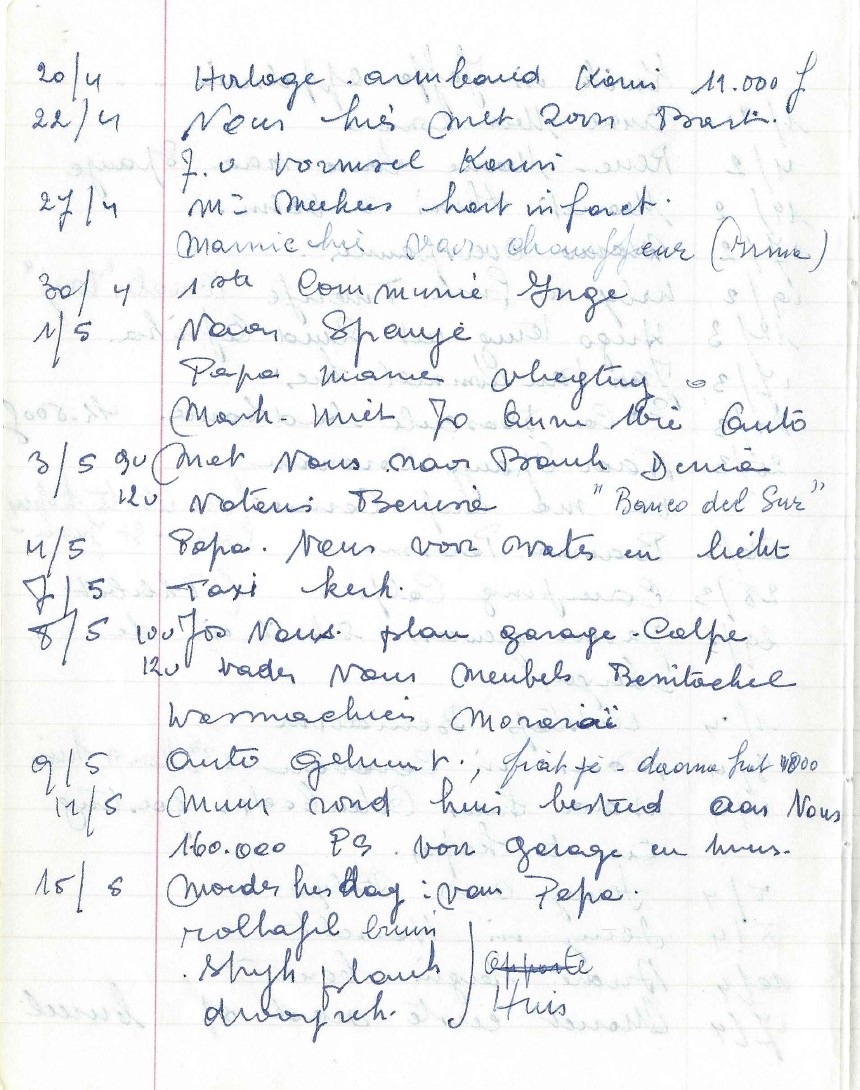 20/4 Horloge armband Karin 11.000 f
22/4 Nous hier met zoon Bart.
J. v vormsel Karin
27/4 Mr Meekers hart infarct.
Mamie hier naar chauffeur (Irma)
30/4 1ste Communie Inge
1/5 Naar Spanje
Papa mamie vliegtuig
Mark. Miet Jo Anne Marie Auto
3/5 9u Met Nous naar Bank Denia
12u Notaris Benissa "Banco del Sur"
4/5 Papa. Nous voor water en licht
7/5 Taxi kerk.
8/5 10u Jos Nous. plan garage - Calpe
12u vader Nous Meubels Benitachel
Wasmachien Moraria
9/5 Auto gehuurd., fiatje - daarna fiat 1800
11/5 Muur rond huis besteld aan Nous
160.000 PS. voor garage en huis.
15/5 Moederkesdag: van Papa.
roltafel bruin
Stryk plank
droogrek.
Huis